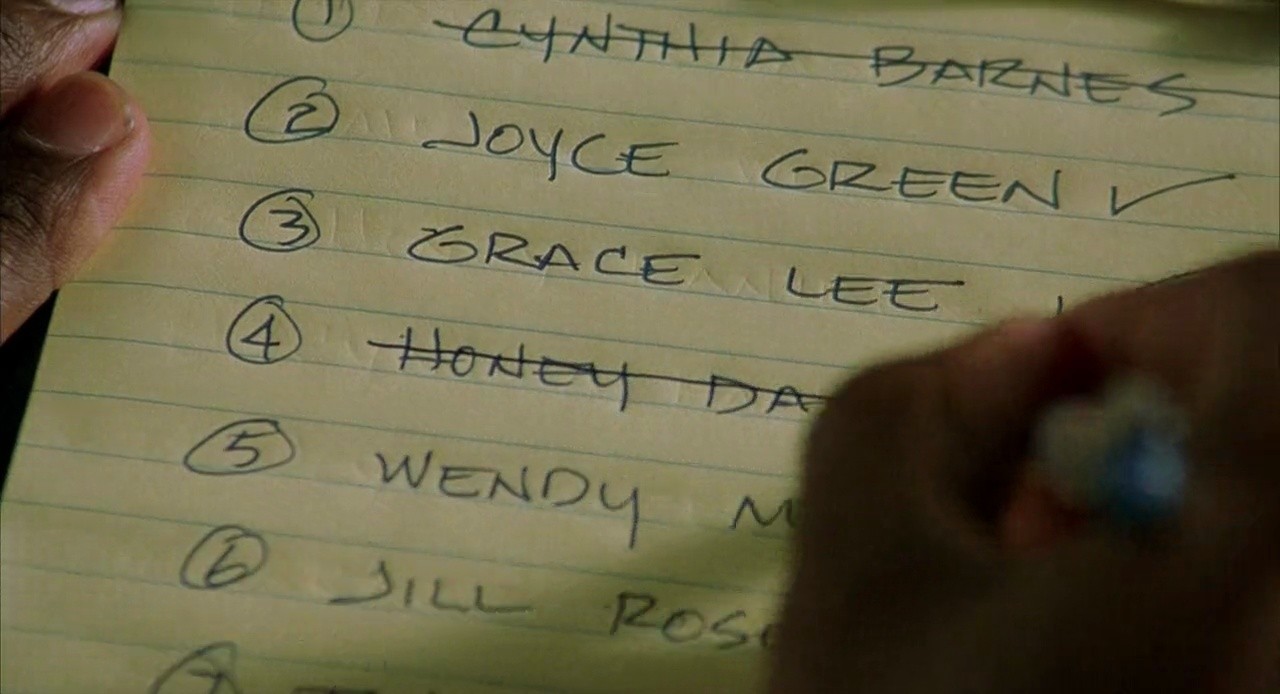 ① CYNTHIA BARNES
② JOYCE GREEN ✓
③ GRACE LEE
④ HONEY DA
⑤ WENDY M
⑥ JILL ROS
⑦